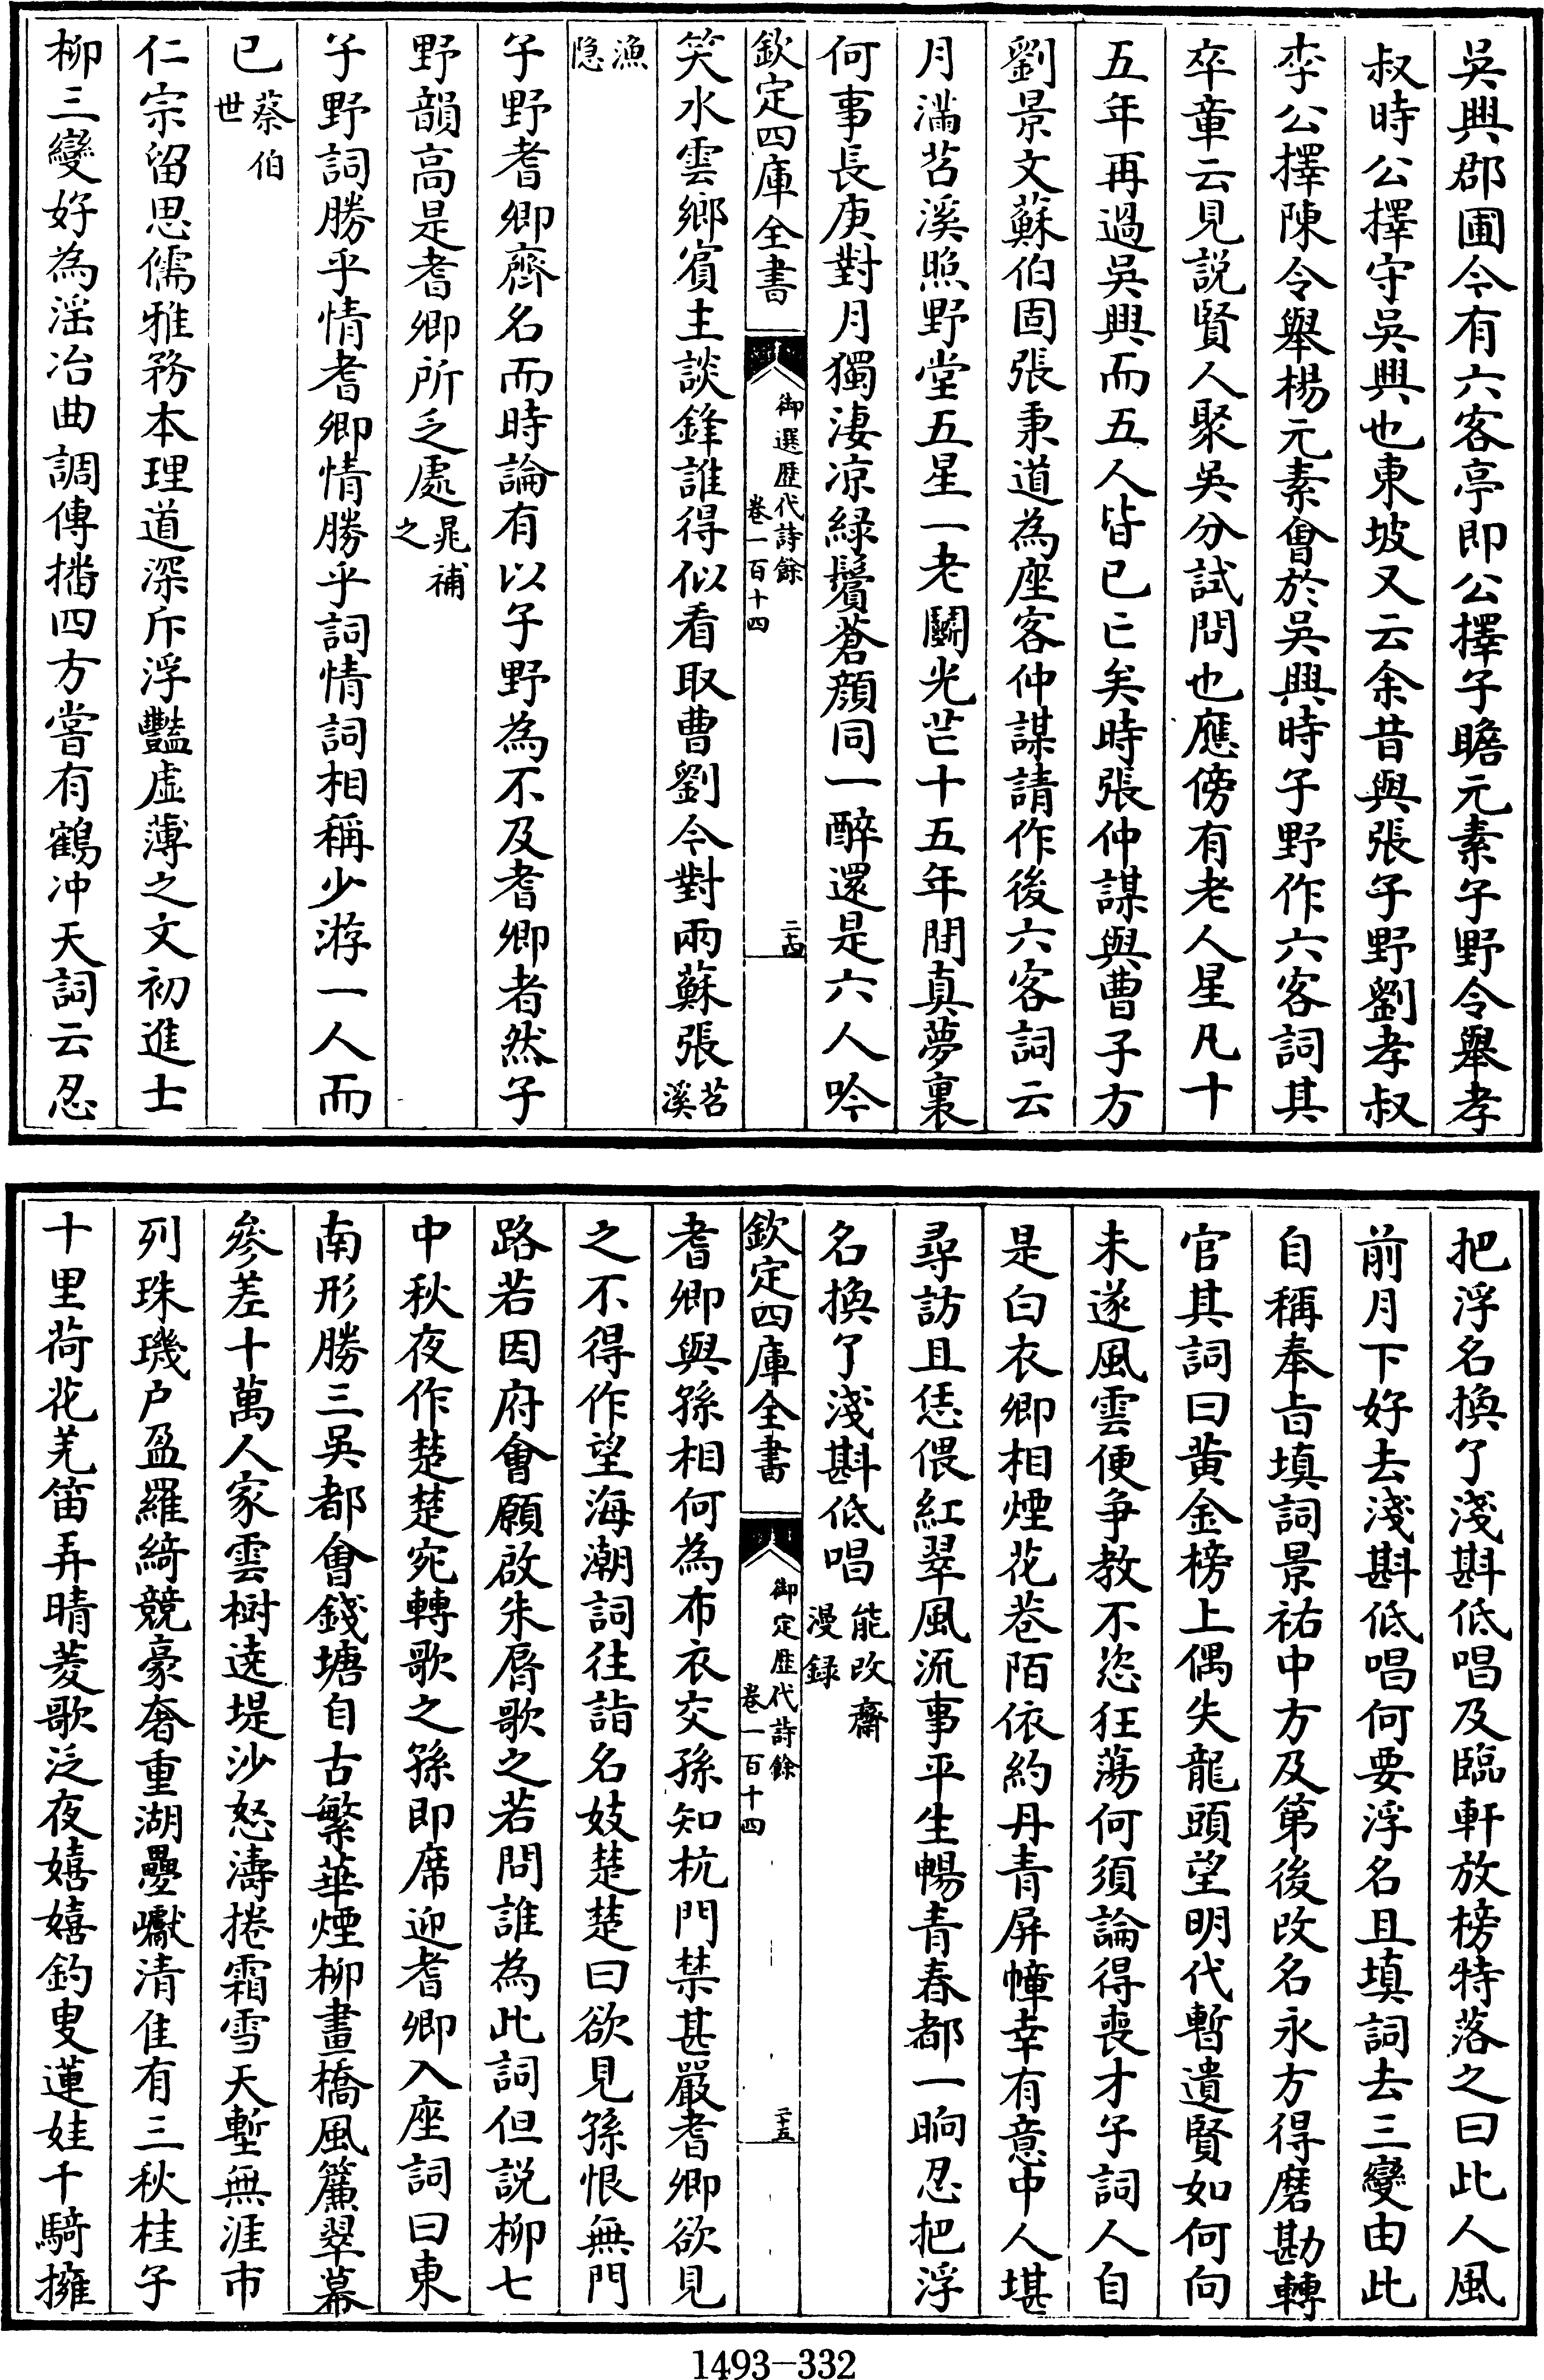 吳興郡圃今有六客亭即公擇子瞻元素子野令舉孝
叔時公擇守吳興也東坡又云余昔與張子野劉孝叔
李公擇陳令舉楊元素會於吳興時子野作六客詞其
卒章云見說賢人聚吳分試問也應傍有老人星凡十
五年再過吳興而五人皆已亡矣時張仲謀與曹子方
劉景文蘇伯固張秉道為座客仲謀請作後六客詞云
月滿苕溪照野堂五星一老鬭光芒十五年間真夢裏
何事長庚對月獨淒凉緑鬢蒼顔同一醉還是六人吟
欽定四庫全書
御選歴代詩餘
卷一百十四
二十四
笑水雲鄉賓主談鋒誰得似看取曹劉今對兩蘇張苕溪
漁隐
子野耆卿齊名而時論有以子野為不及耆卿者然子
野韻高是耆卿所乏處晁補之
子野詞勝乎情耆卿情勝乎詞情詞相稱少游一人而
已蔡伯世
仁宗留思儒雅務本理道深斥浮豔虛薄之文初進士
柳三變好為滛冶曲調傳播四方嘗有鶴冲天詞云忍
把浮名換了淺斟低唱及臨軒放榜特落之曰此人風
前月下好去淺斟低唱何要浮名且填詞去三變由此
自稱奉旨填詞景祐中方及第後改名永方得磨勘轉
官其詞曰黄金榜上偶失龍頭望明代暫遺賢如何向
未遂風雲便争教不恣狂蕩何須論得喪才子詞人自
是白衣卿相煙花巷陌依約丹青屏幛幸有意中人堪
尋訪且恁偎紅翠風流事平生暢青春都一晌忍把浮
名換了淺斟低唱能改齋漫録
欽定四庫全書
御定歴代詩餘
卷一百十四
二十五
耆卿與孫相何為布衣交孫知杭門禁甚嚴耆卿欲見
之不得作望海潮詞往詣名妓楚楚曰欲見孫恨無門
路若因府會願啟朱脣歌之若問誰為此詞但説柳七
中秋夜作楚楚宛轉歌之孫即席迎耆卿入座詞曰東
南形勝三吳都會錢塘自古繁華煙柳畫橋風簾翠幕
參差十萬人家雲樹遶堤沙怒濤捲霜雪天塹無涯市
列珠璣户盈羅綺競豪奢重湖疊巘清佳有三秋桂子
十里荷花羌笛弄晴菱歌泛夜嬉嬉釣叟蓮娃千騎擁
1493-332